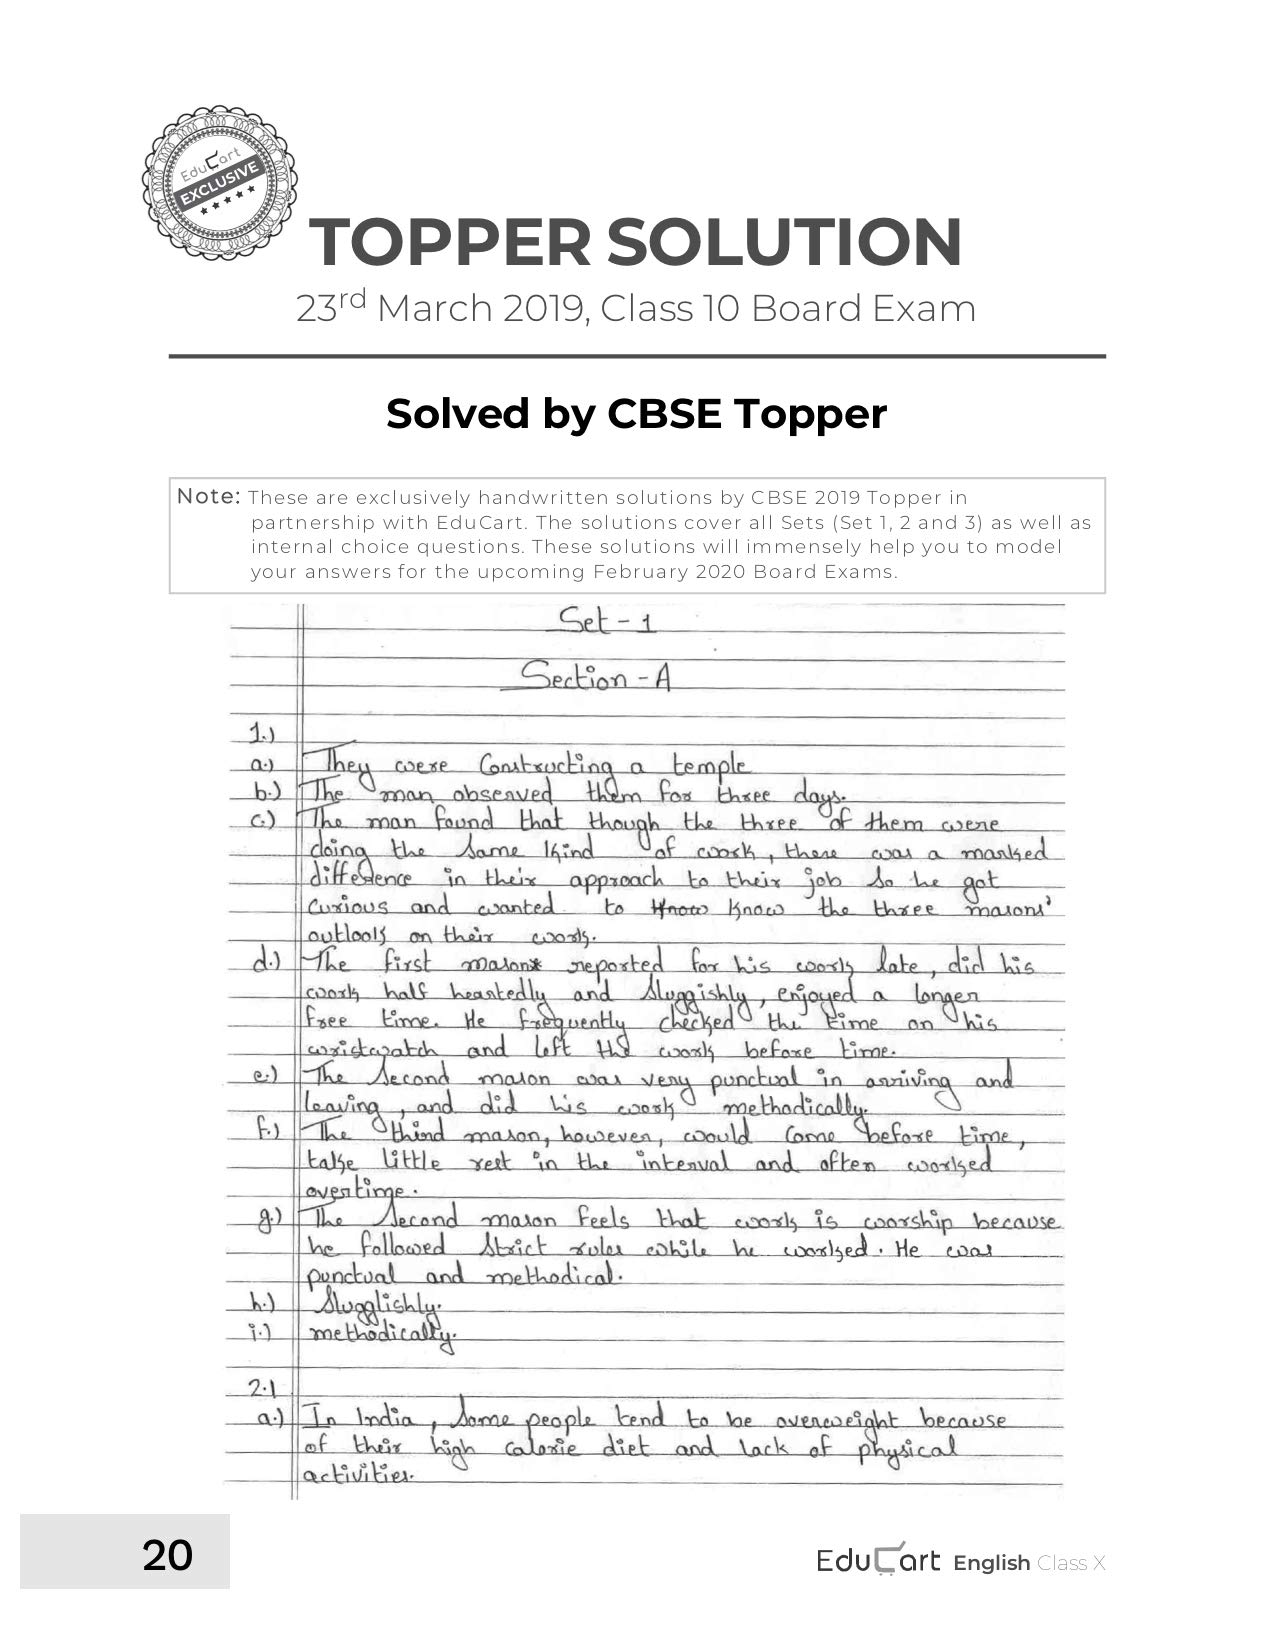 EduCart
EXCLUSIVE
TOPPER SOLUTION
23rd March 2019, Class 10 Board Exam
Solved by CBSE Topper
Note: These are exclusively handwritten solutions by CBSE 2019 Topper in
partnership with EduCart. The solutions cover all Sets (Set 1, 2 and 3) as well as
internal choice questions. These solutions will immensely help you to model
your answers for the upcoming February 2020 Board Exams.
Set - 1
Section - A
1.)
a.) They were Constructing a temple
b.) The man observed them for three days.
c.) The man found that though the three of them were
doing the Same Kind of work, there was a marked
difference in their approach to their job So he got
Curious and wanted to Know Know the three masons'
outlook on their work.
d.) The first mason reported for his work late, did his
work half heartedly and Sluggishly, enjoyed a longer
free time. He frequently checked the time on his
wristwatch and left the work before time.
e.) The Second mason was very punctual in arriving and
leaving, and did his work methodically.
f.) The third mason, however, would Come before time,
take little rest in the interval and often worked
overtime.
g.) The Second mason feels that work is worship because
he followed Strict rules while he worked. He was
punctual and methodical.
h.) Slugglishly.
i.) methodically.
2.1
a.) In India, Some people tend to be overweight because
of their high calorie diet and lack of physical
activities.
20
EduCart English Class X